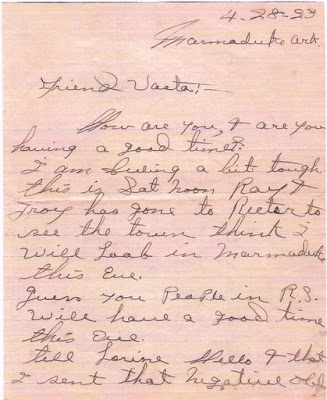 4-28-23
Marmaduke Ark.
Friend Vasta:-
How are you, & are you
having a good time?
I am feeling a bit tough
this is Sat noon Ray &
Troy has gone to Rector to
see the town think I
Will Loab in Marmaduke
this Eve.
Guess you People in P.G.
Will have a good time
this Eve.
tell Lorine Hello & that
I sent that Negative of